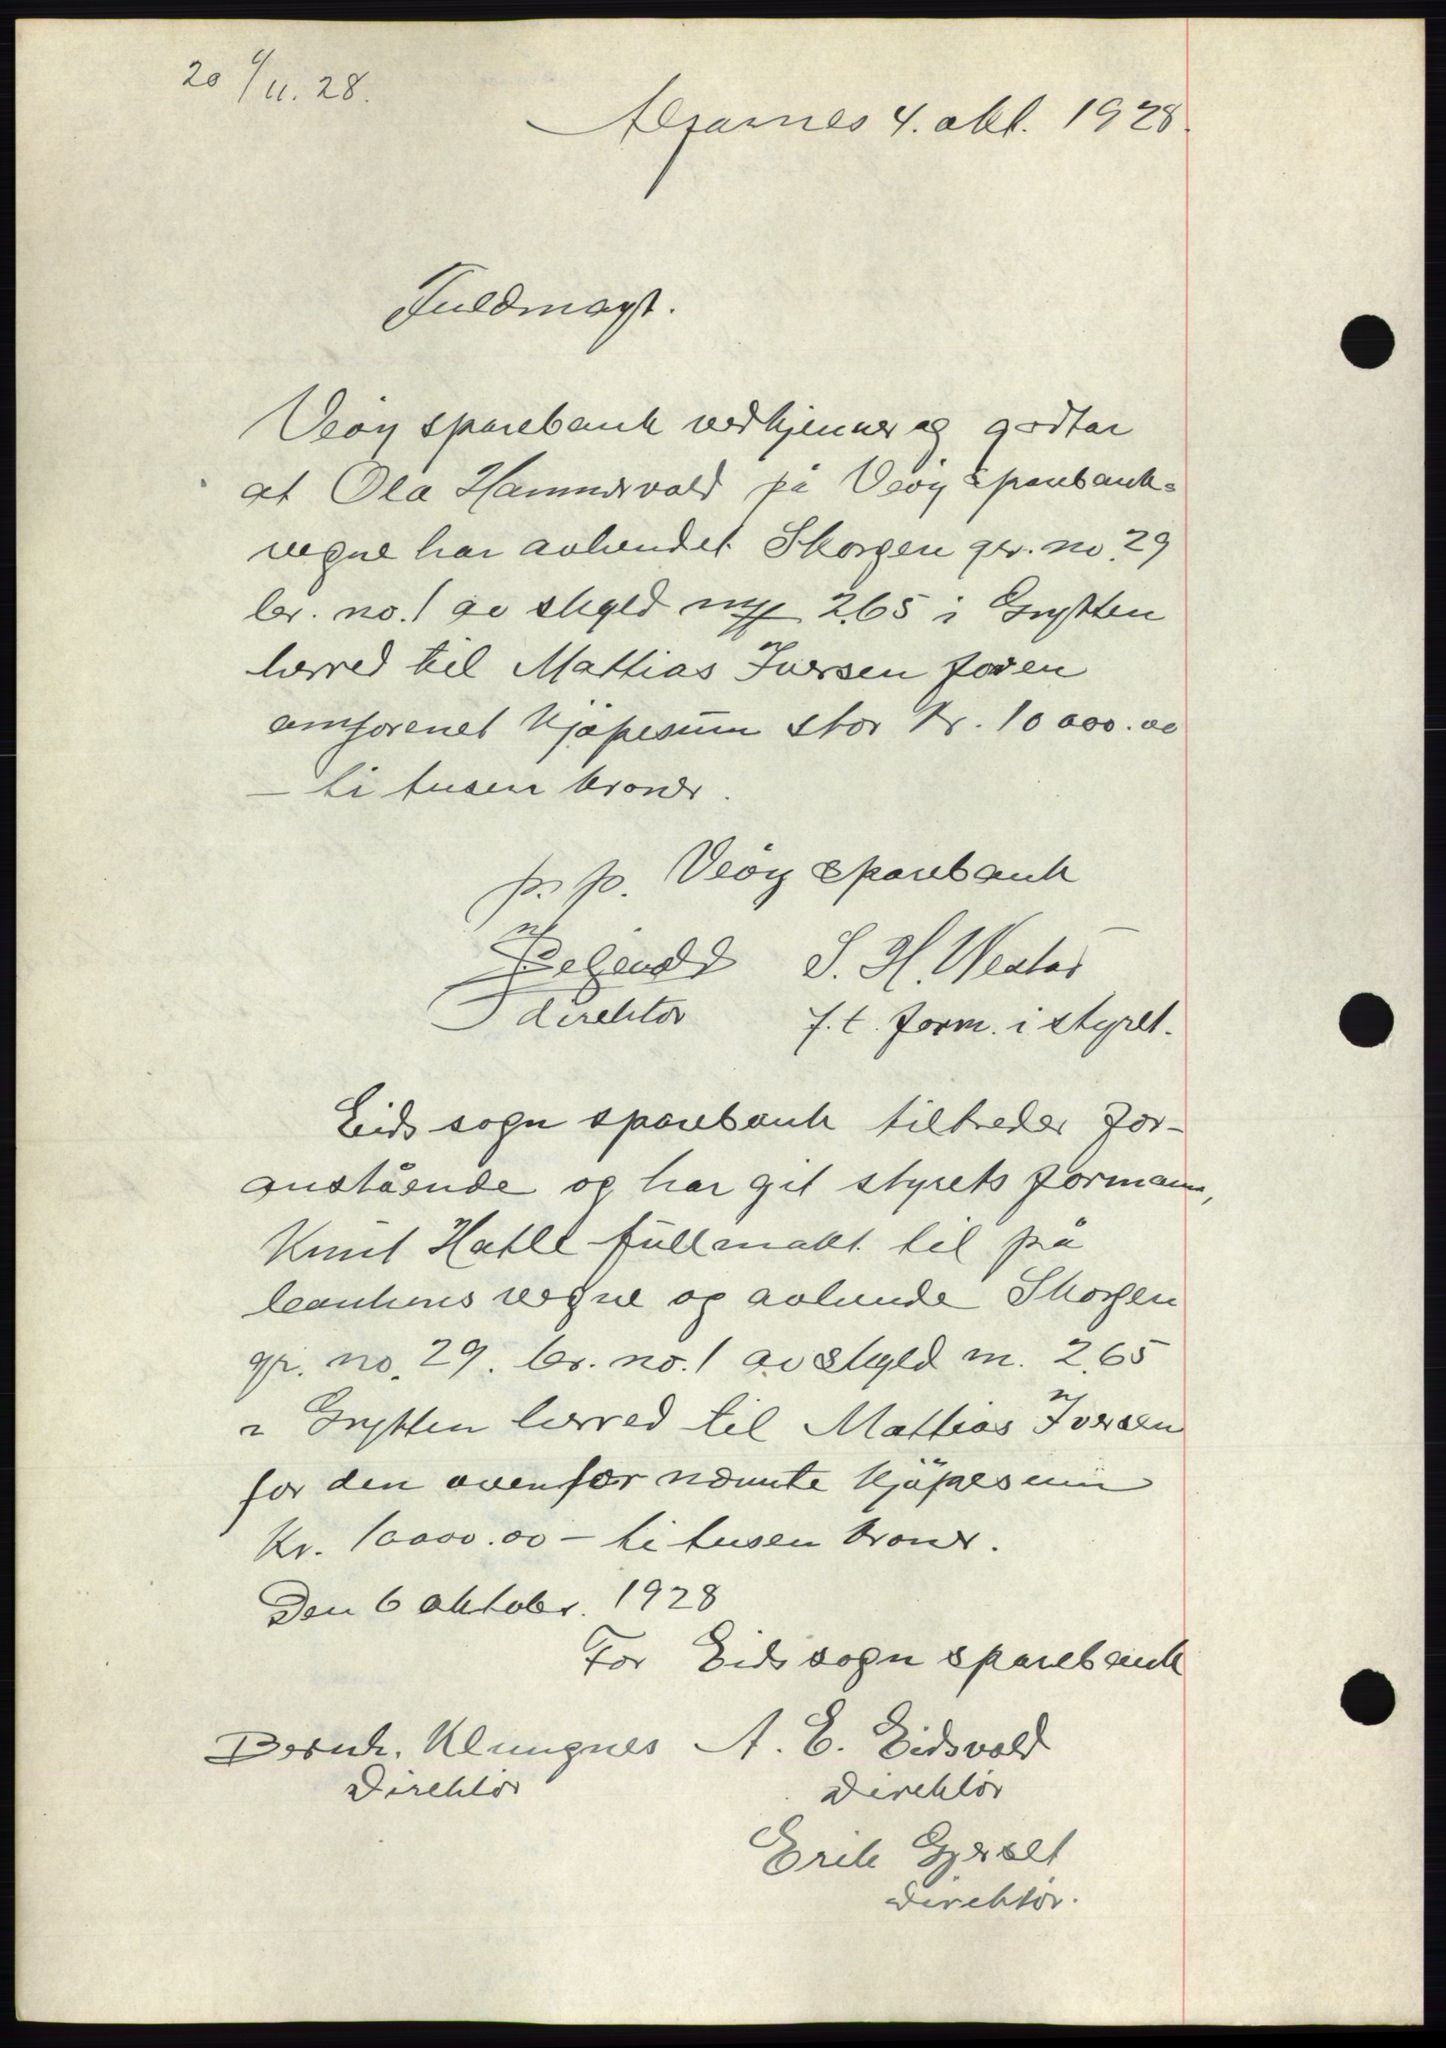 20 9/11. 28.
4. okt. 1928.
Fuldmagt.
Veöy sparebank vedkjenner og godtar
at Ola Hammervold på Veöy sparebank-
vegne har avhendet Skorgen gr. no. 29
br. no. 1 av skyld my 2.65 i Grytten
herred til Mattias Iversen for en
omforenet kjöpesum stor kr. 10 000.00
— ti tusen kroner.
p. p. Veöy sparebank
S. H. Westad
direktör f. t. form. i styret.
Eid sogn sparebank tiltreder for-
anstående og har git styrets formann,
Knut Hatle fullmakt til på
bankens vegne og avhende Skorgen
gr. no. 29. br. no. 1 av skyld m. 2.65
i Grytten herred til Mattias Iversen
for den ovenfor nevnte kjöpesum
Kr. 10000.00 – ti tusen kroner.
Den 6 oktober. 1928
For Eid sogn sparebank
Bernh. Klungnes A. E. Eidsvold
Direktör Direktör
Erik Gjerset
direktör.